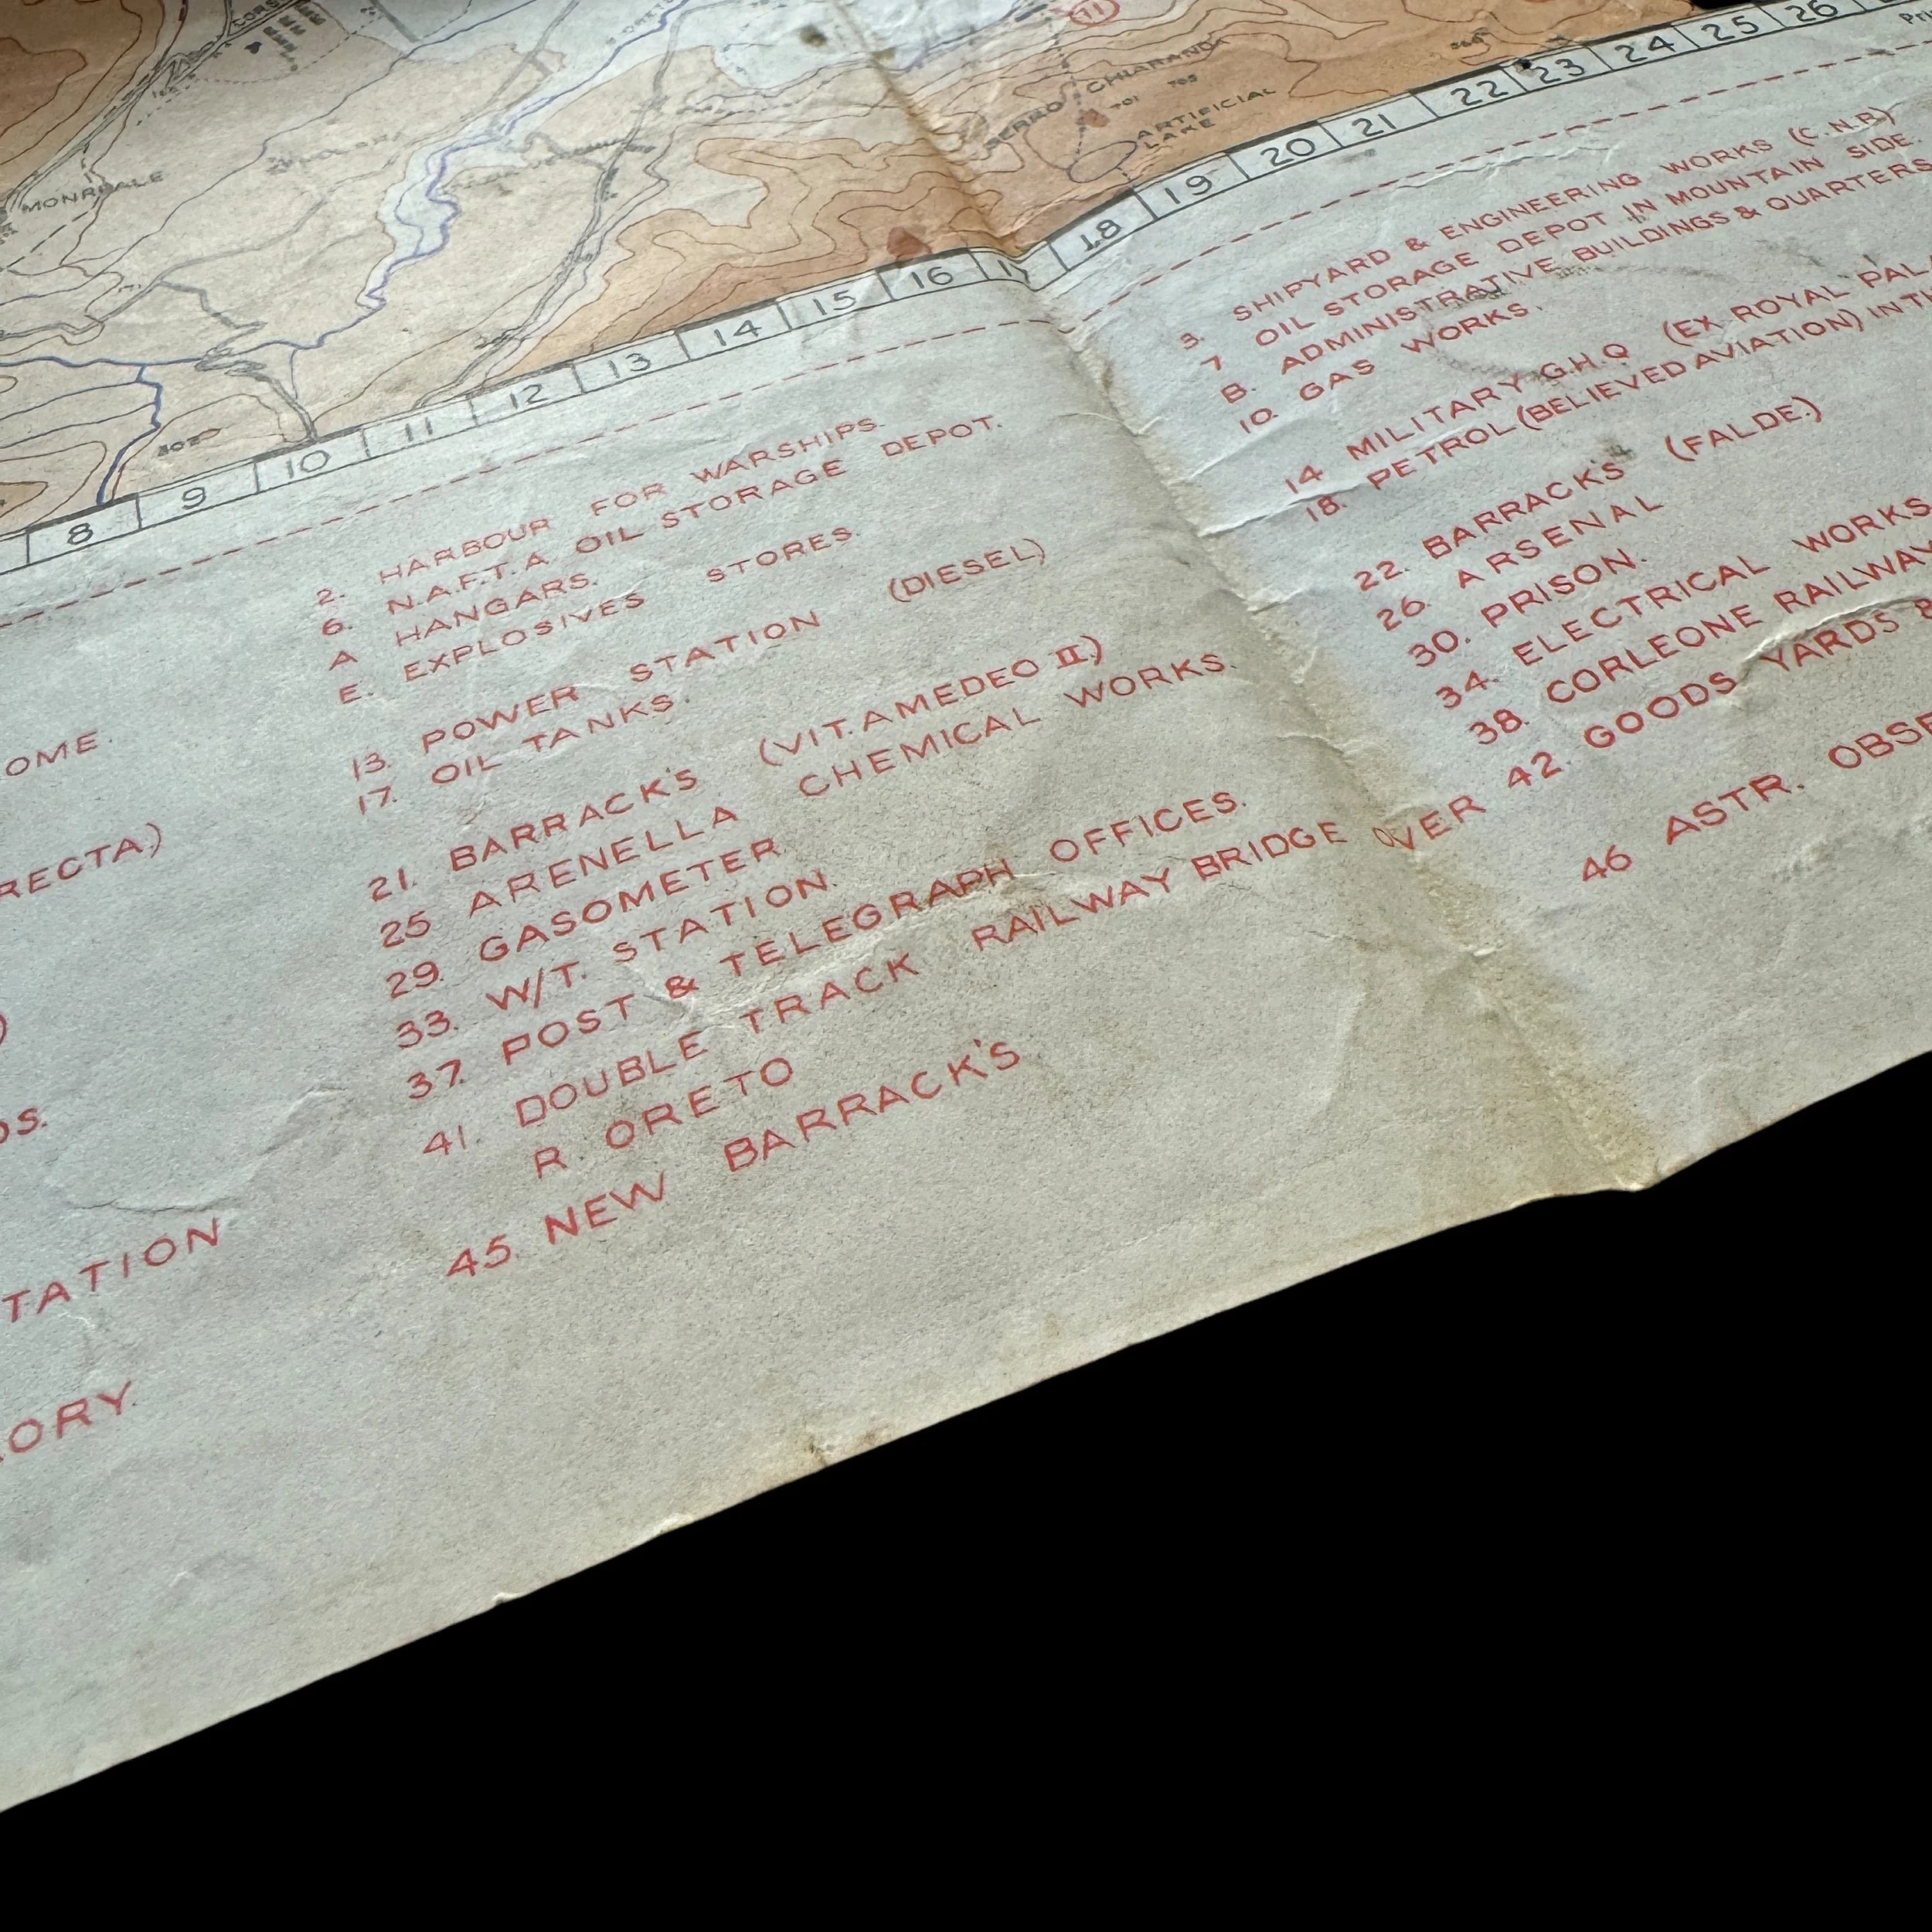 CORSO
S ORETO
71
MONREALE
SERRO CHIARANDA
701 705
ARTIFICIAL
LAKE
8 9 10 11 12 13 14 15 16 17 18 19 20 21 22 23 24 25 26
OME.
RECTA.)
)
DS.
TATION
ORY.
2. HARBOUR FOR WARSHIPS.
6. N.A.F.T.A. OIL STORAGE DEPOT.
A HANGARS.
E. EXPLOSIVES STORES.
13. POWER STATION (DIESEL)
17. OIL TANKS.
21. BARRACK'S (VIT. AMEDEO II.)
25 ARENELLA CHEMICAL WORKS.
29. GASOMETER
33. W/T. STATION.
37. POST & TELEGRAPH OFFICES.
41. DOUBLE TRACK RAILWAY BRIDGE OVER
R ORETO
45. NEW BARRACK'S
3. SHIPYARD & ENGINEERING WORKS (C.N.R.)
7 OIL STORAGE DEPOT IN MOUNTAIN SIDE.
B. ADMINISTRATIVE BUILDINGS & QUARTERS
10. GAS WORKS.
14 MILITARY G.H.Q (EX ROYAL PALA
18. PETROL (BELIEVED AVIATION) IN TH
22. BARRACK'S (FALDE.)
26. ARSENAL
30. PRISON.
34. ELECTRICAL WORKS
38. CORLEONE RAILWAY
42. GOODS YARDS
46 ASTR. OBSE